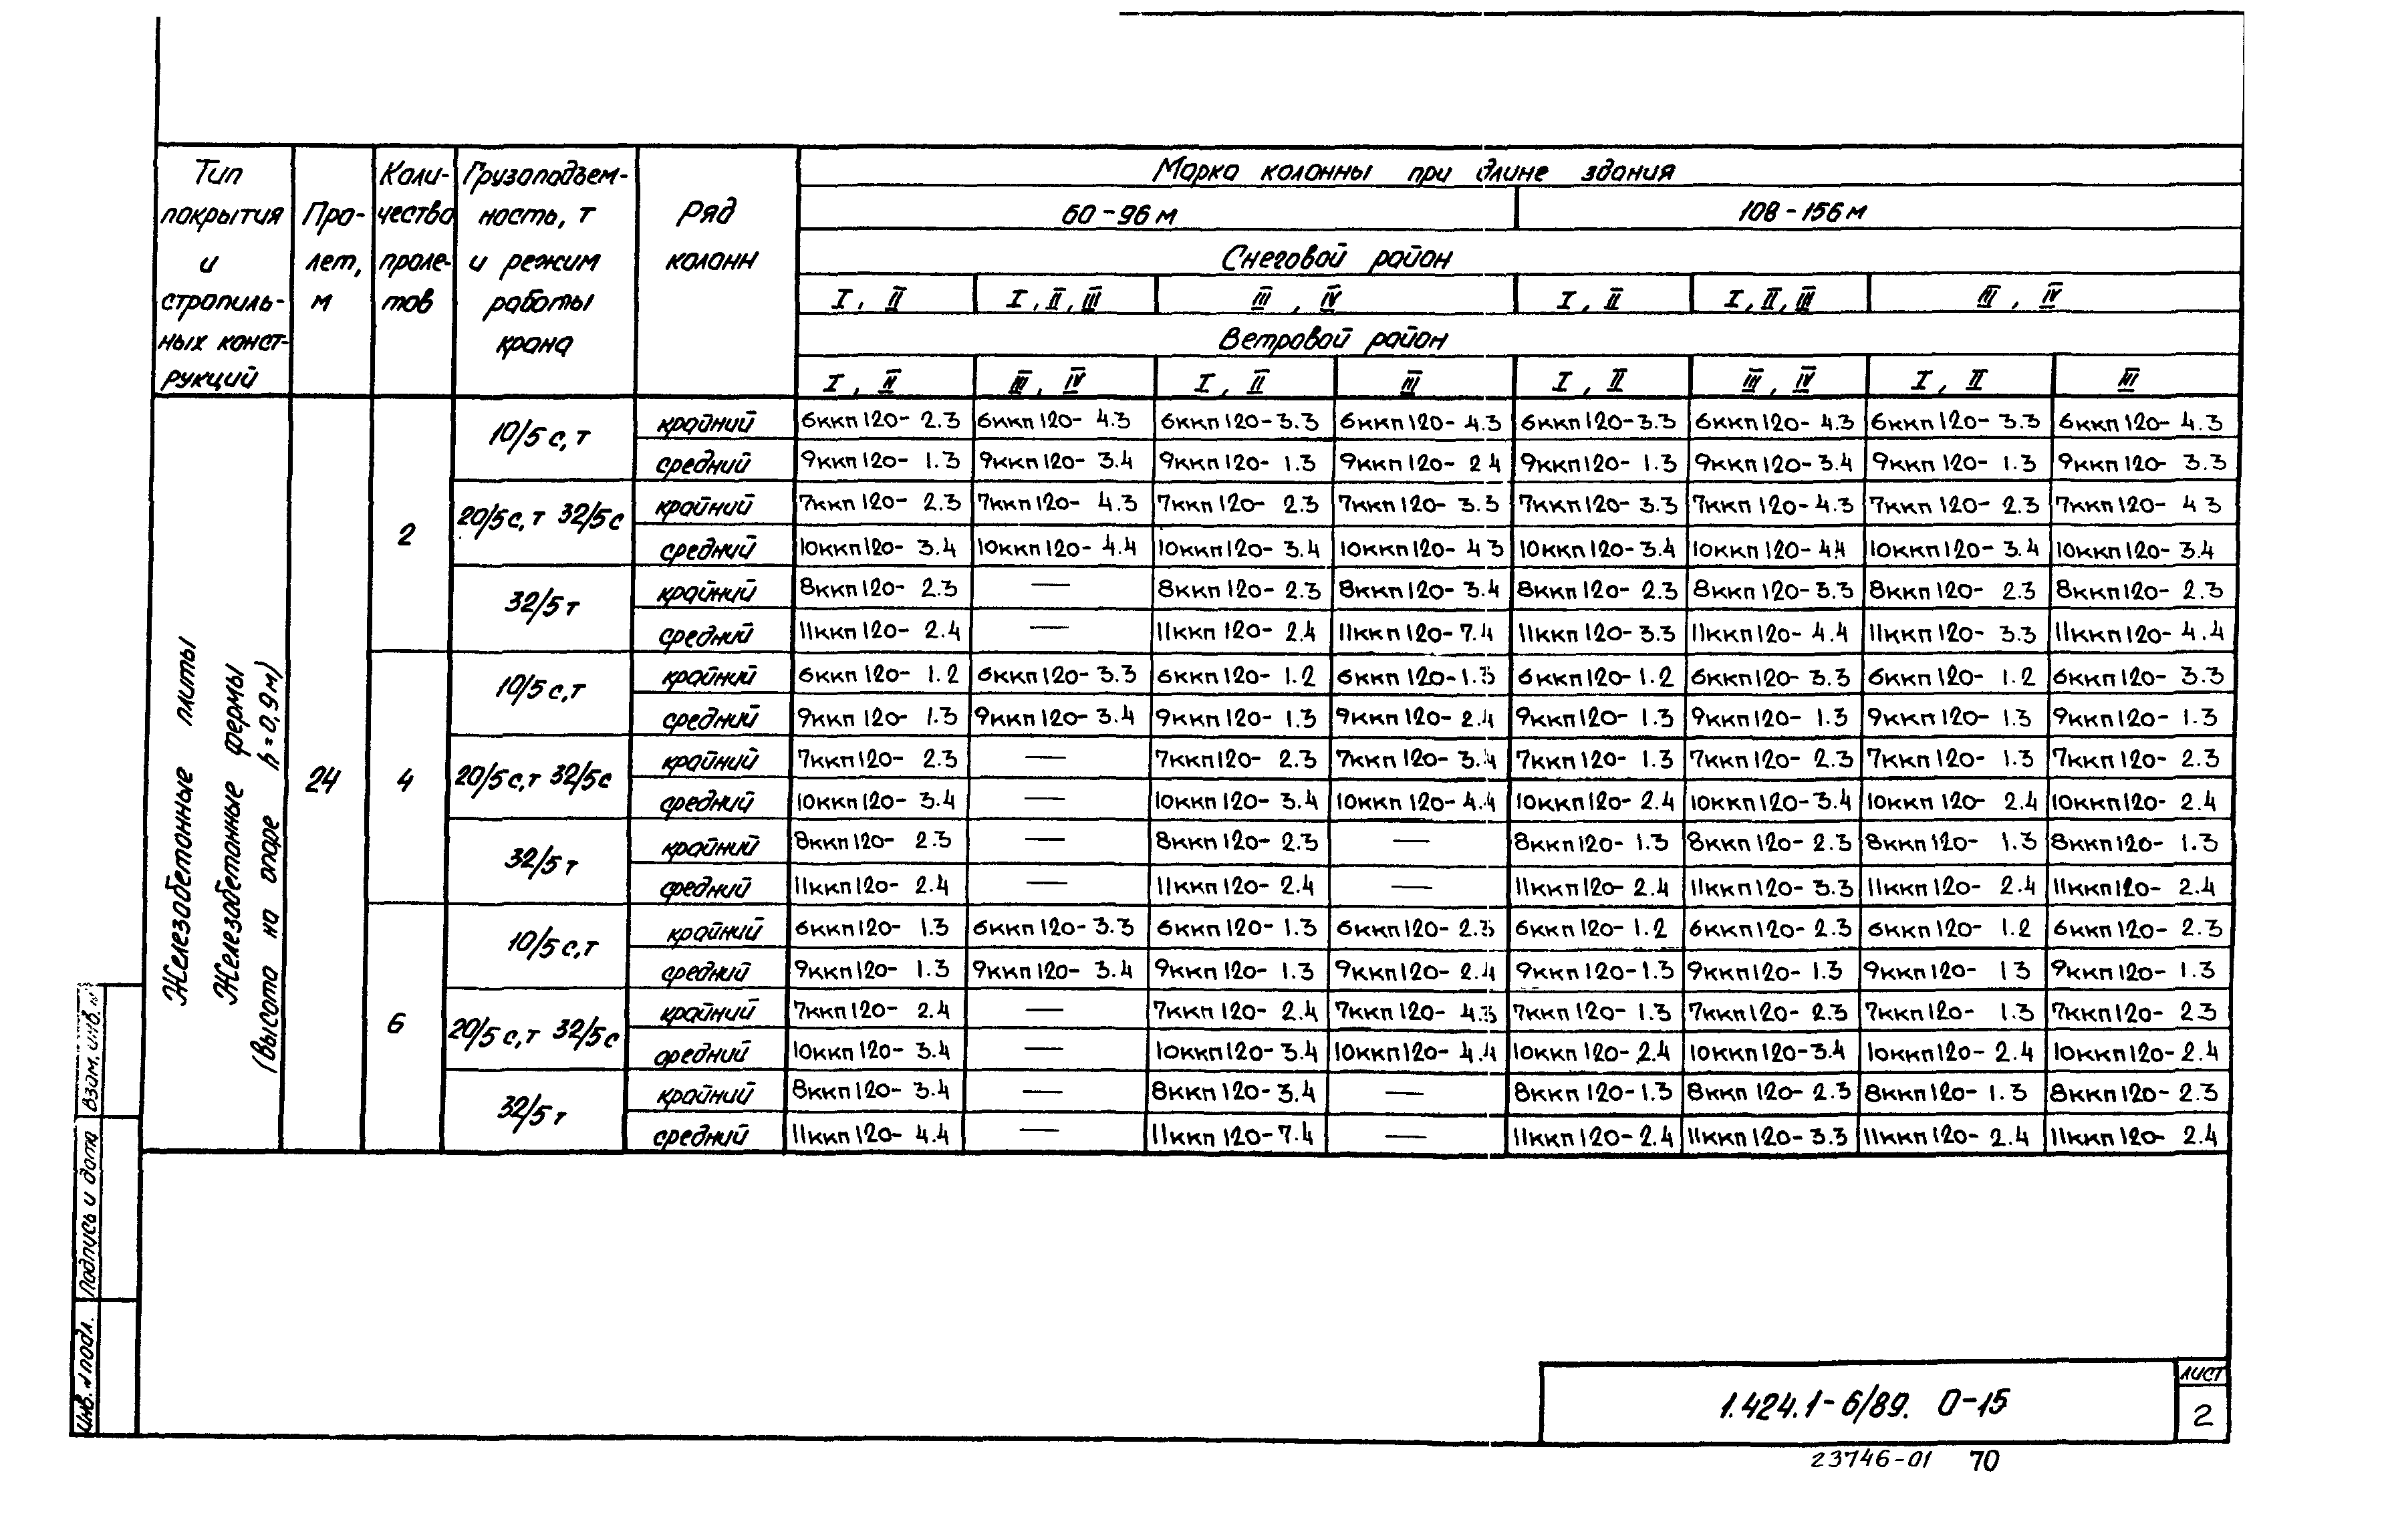 Тип покрытия и стропиль- ных конст- рукций
Про- лет, м
Коли- чество проле- тов
Грузоподъем- ность, т и режим работы крана
Ряд колонн
Марка колонны при длине здания
60-96 м 108-156 м
Снеговой район
I, II I, II, III III, IV I, II I, II, III III, IV
Ветровой район
I, II III, IV I, II III I, II III, IV I, II III
Железобетонные плиты
Железобетонные фермы
(высота на опоре h=0,9м)
24
2
10/5 с,т
крайний 6ккп120-2.3 6ккп120-4.3 6ккп120-3.3 6ккп120-4.3 6ккп120-3.3 6ккп120-4.3 6ккп120-3.3 6ккп120-4.3
средний 9ккп120-1.3 9ккп120-3.4 9ккп120-1.3 9ккп120-2 4 9ккп120-1.3 9ккп120-3.4 9ккп120-1.3 9ккп120-3.3
20/5 с,т 32/5 с
крайний 7ккп120-2.3 7ккп120-4.3 7ккп120-2.3 7ккп120-3.3 7ккп120-3.3 7ккп120-4.3 7ккп120-2.3 7ккп120-4 3
средний 10ккп120-3.4 10ккп120-4.4 10ккп120-3.4 10ккп120-4 3 10ккп120-3.4 10ккп120-4.4 10ккп120-3.4 10ккп120-3.4
32/5 т
крайний 8ккп120-2.3 — 8ккп120-2.3 8ккп120-3.4 8ккп120-2.3 8ккп120-3.3 8ккп120-2.3 8ккп120-2.3
средний 11ккп120-2.4 — 11ккп120-2.4 11ккп120-7.4 11ккп120-3.3 11ккп120-4.4 11ккп120-3.3 11ккп120-4.4
4
10/5 с,т
крайний 6ккп120-1.2 6ккп120-3.3 6ккп120-1.2 6ккп120-1.3 6ккп120-1.2 6ккп120-3.3 6ккп120-1.2 6ккп120-3.3
средний 9ккп120-1.3 9ккп120-3.4 9ккп120-1.3 9ккп120-2.4 9ккп120-1.3 9ккп120-1.3 9ккп120-1.3 9ккп120-1.3
20/5 с,т 32/5 с
крайний 7ккп120-2.3 — 7ккп120-2.3 7ккп120-3.4 7ккп120-1.3 7ккп120-2.3 7ккп120-1.3 7ккп120-2.3
средний 10ккп120-3.4 — 10ккп120-3.4 10ккп120-4.4 10ккп120-2.4 10ккп120-3.4 10ккп120-2.4 10ккп120-2.4
32/5 т
крайний 8ккп120-2.3 — 8ккп120-2.3 — 8ккп120-1.3 8ккп120-2.3 8ккп120-1.3 8ккп120-1.3
средний 11ккп120-2.4 — 11ккп120-2.4 — 11ккп120-2.4 11ккп120-3.3 11ккп120-2.4 11ккп120-2.4
6
10/5 с,т
крайний 6ккп120-1.3 6ккп120-3.3 6ккп120-1.3 6ккп120-2.3 6ккп120-1.2 6ккп120-2.3 6ккп120-1.2 6ккп120-2.3
средний 9ккп120-1.3 9ккп120-3.4 9ккп120-1.3 9ккп120-2.4 9ккп120-1.3 9ккп120-1.3 9ккп120-1 3 9ккп120-1.3
20/5 с,т 32/5 с
крайний 7ккп120-2.4 — 7ккп120-2.4 7ккп120-4.3 7ккп120-1.3 7ккп120-2.3 7ккп120-1.3 7ккп120-2 3
средний 10ккп120-3.4 — 10ккп120-3.4 10ккп120-4.4 10ккп120-2.4 10ккп120-3.4 10ккп120-2.4 10ккп120-2.4
32/5 т
крайний 8ккп120-3.4 — 8ккп120-3.4 — 8ккп120-1.3 8ккп120-2.3 8ккп120-1.3 8ккп120-2.3
средний 11ккп120-4.4 — 11ккп120-7.4 — 11ккп120-2.4 11ккп120-3.3 11ккп120-2.4 11ккп120-2.4
Взам. инв. №
Подпись и дата
Инв. № подл.
1.424.1-6/89. 0-15
лист
2
23746-01 70